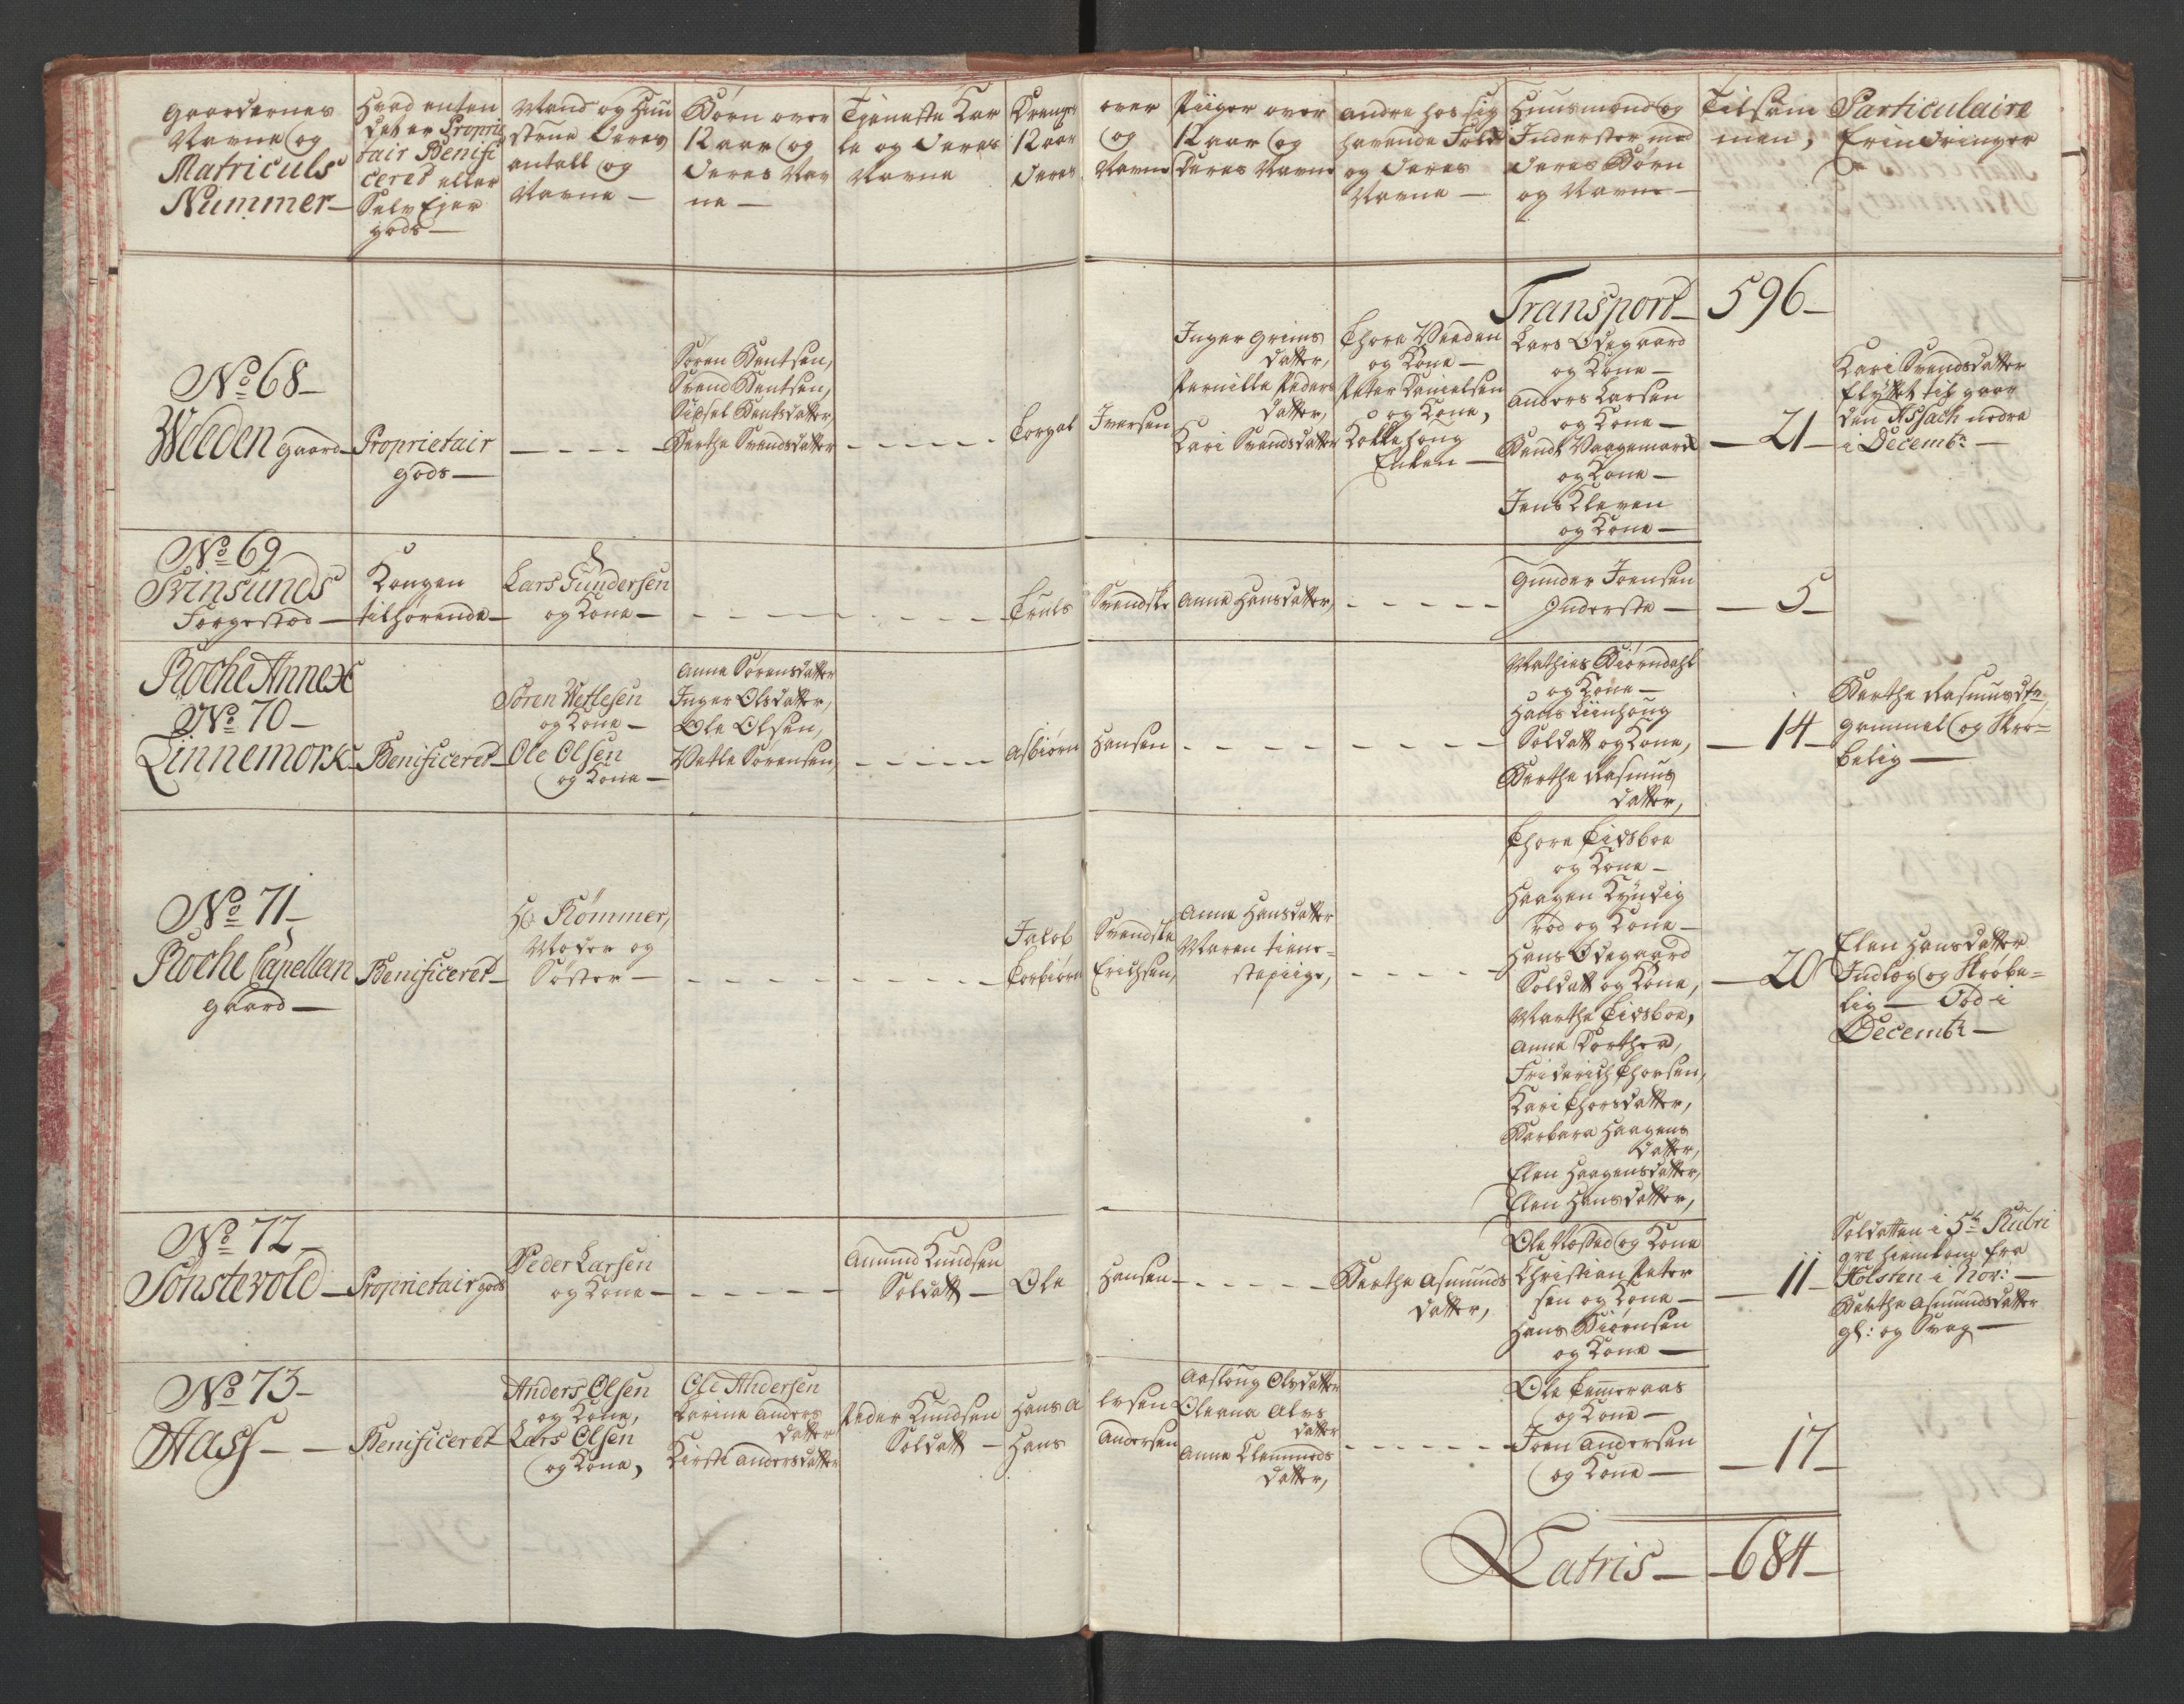 Gaardernes
Navne og
Matriculs
Nummer
Hvad enten
det er Proprie
tair Benifi
ceret eller
Selv Ejer
gods
Mand og Huu
strue deres
antall og
Navne
Børn over
12 aar og
deres Nav
ne
Tjeneste Kar
le og deres
Navne
Drenge over
12 aar og
deres Navne
Piiger over
12 aar og
deres Navne
andre hos sig
havende Folk
og deres
Navne
Huusmænd og
Inderster med
deres Børn
og Navne
Tilsam
men,
Particulaire
Erindringer
Transport 596
No 68
Weeden gaard
Proprietair
gods
Søren Bentsen,
Svend Bentsen,
Sidsel Bentsdatter,
Berthe Svendsdatter
Torgal Iversen
Inger Grims
datter,
Pernille Peders
datter,
Kari Svendsdatter
Thore Weeden
og Kone
Peter Danielsen
og Kone,
Enken
Lars Ødegaard
og Kone
Anders Larsen
og Kone
Bendt
og Kone
Jens Kleven
og Kone
21
Kari Svendsdatter
flyttet til gaar
den Assach nedre
i Decembr:
No 69
Svinsunds
Færgestad
Kongen
tilhørende
Lars Gundersen
og Kone
Truls Svendske
Anne Hansdatter,
Gunder Joensen
Inderste
5
Roche Annex
No 70
Linnemork
Benificeret
Søren Wetlesen
og Kone
Ole Olsen
og Kone
Anne Sørensdatter
Inger Olsdatter,
Ole Olsen,
Vetle Sørensen,
Asbiørn Hansen
Mathies Biørndahl
og Kone
Hans Liinhoug
Soldatt og Kone,
Berthe Rasmus
datter,
14
Berthe Rasmusdtr
gammel og Skrø=
belig
No 71
Roche Capellan
gaard
Benificeret
Hr Rømmer,
Moder og
Søster
Jacob Svendske
Torbiørn Erichsen,
Anne Hansdatter
Maren tiene=
stepiige,
Thore Eidsboe
og Kone
Haagen Kyndig
rød og Kone
Hans Ødegaard
Soldatt og Kone,
Marthe Eidsboe,
Anne Dorthea,
Friderich Thorsen,
Kari Thorsdatter,
Barbara Haagens
datter,
Elen Haagensdatter,
Elen Hansdatter,
20
Elen Hansdatter
Indlog og Skrøbe=
lig Død i
Decembr
No 72
Sønstevold
Proprietair gods
Peder Larsen
og Kone
Amund Knudsen
Soldatt
Ole Hansen
Berthe Asmunds
datter,
Ole Næsted og Kone
Christian Peter
sen og Kone
Hans Biørnsen
og Kone
11
Soldatten i 5te Rubri
qve hiemkom fra
Holsten i Nov:
Berthe Asmundsdatter
gl: og Svag
No 73
Aass
Benificeret
Anders Olsen
og Kone,
Lars Olsen
og Kone,
Ole Andersen
Karine Anders
datter
Kirsti Andersdatter
Peder Knudsen
Soldatt
Hans Alvsen
Hans Andersen
Aaslaug Olsdatter
Oleana Alvs
datter
Anne Clemmeds
datter,
Ole Temmeraas
og Kone
Joen Andersen
og Kone
17
Latris 684